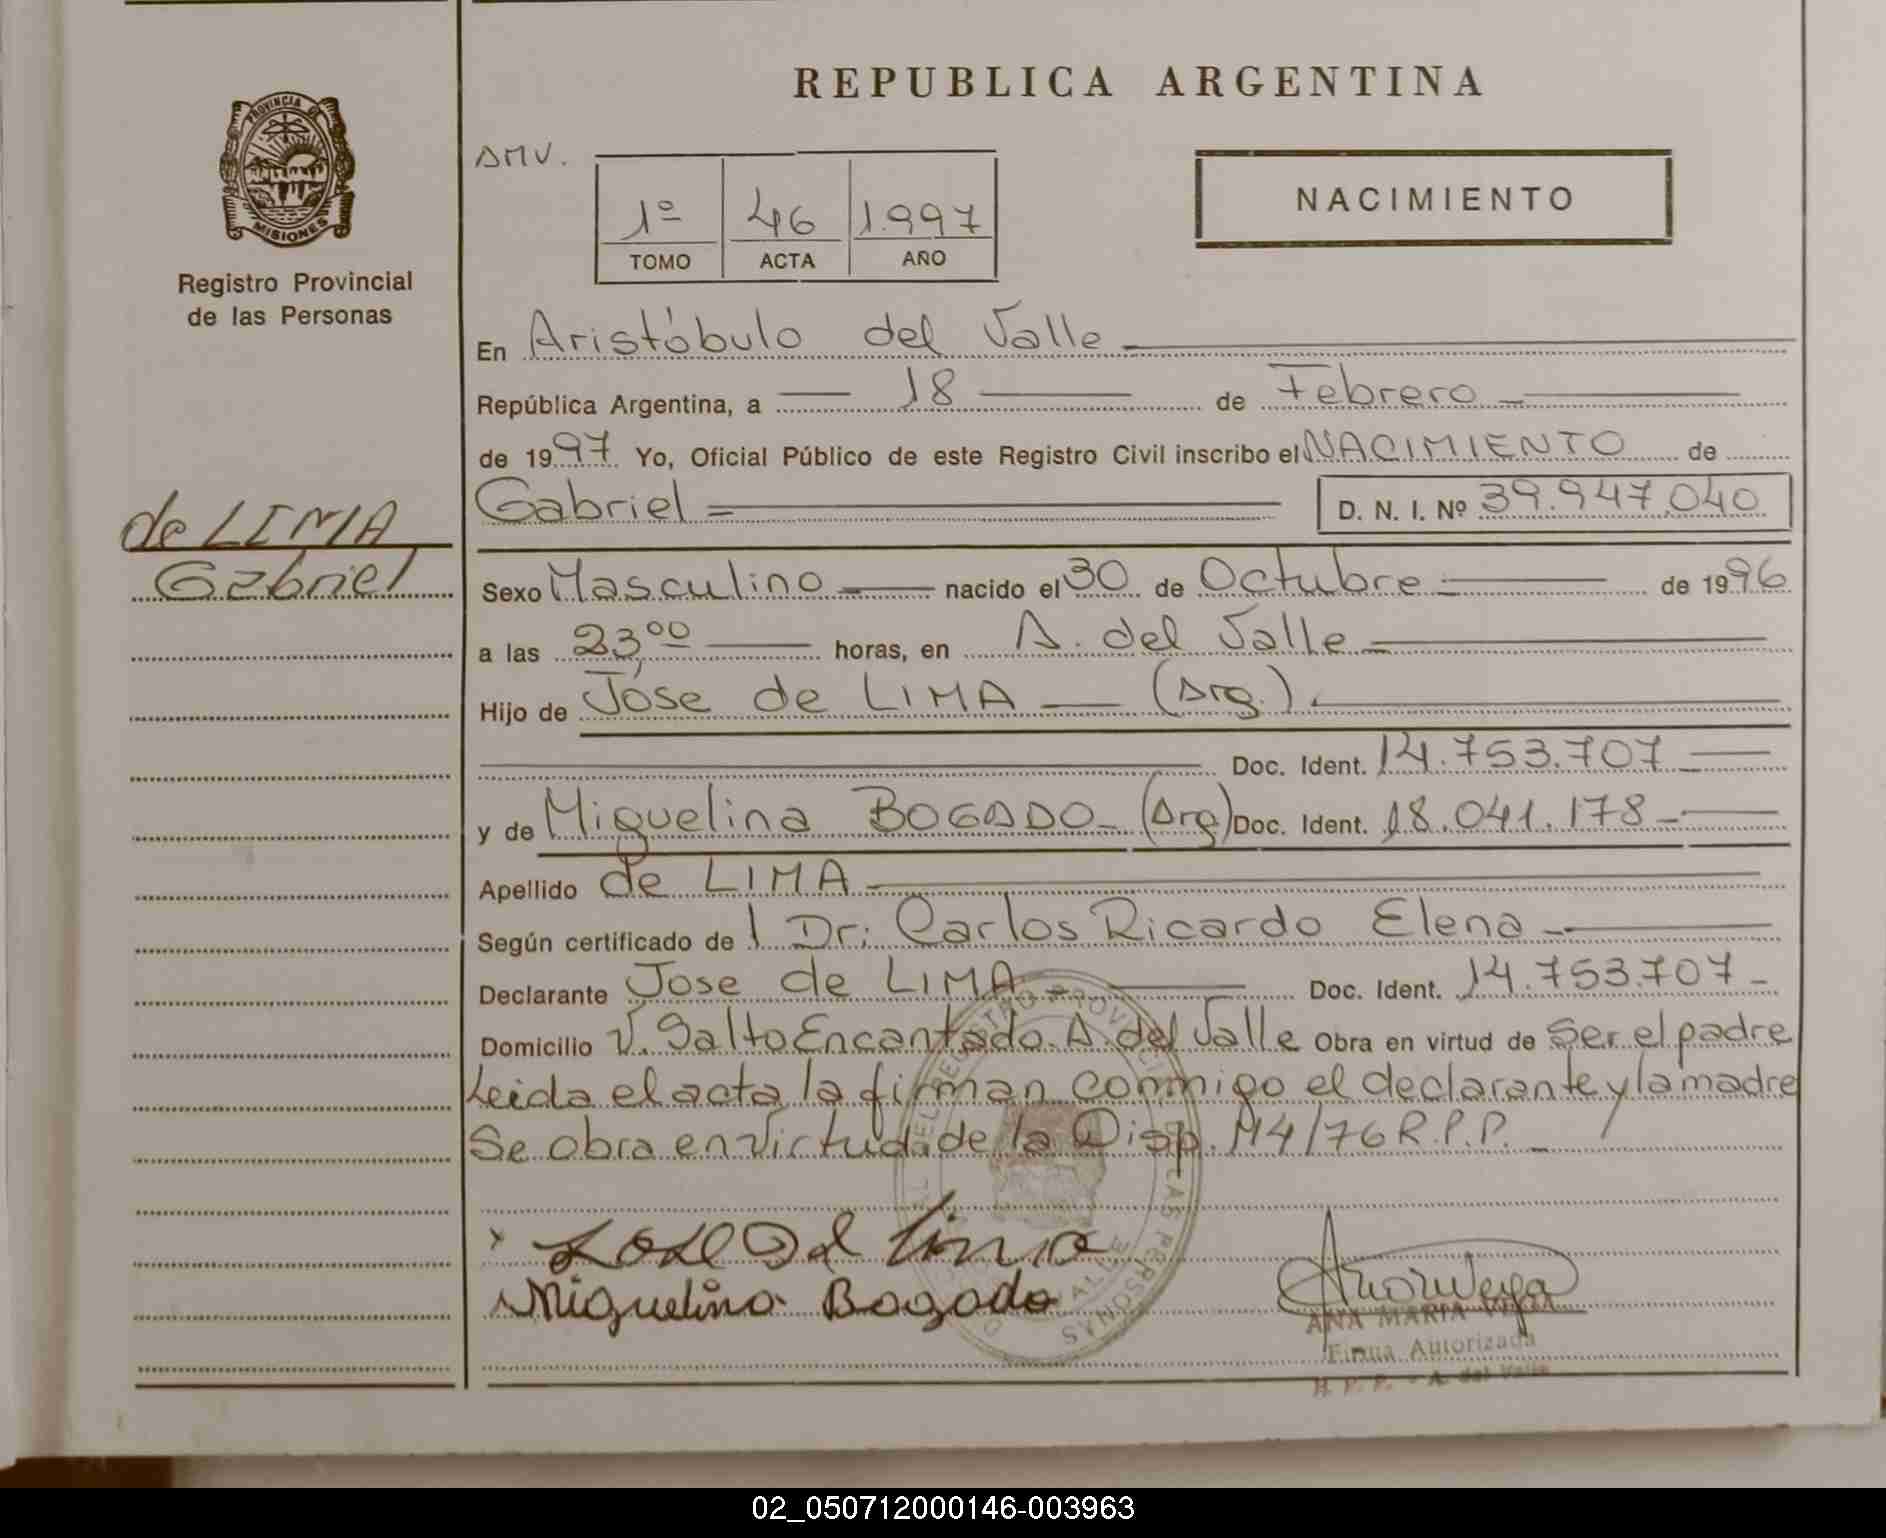 REPUBLICA ARGENTINA
PROVINCIA DE
MISIONES
Registro Provincial
de las Personas
AMV.
1º 46 1.997
TOMO ACTA AÑO
NACIMIENTO
En Aristóbulo del Valle
República Argentina, a 18 de Febrero
de 1997 Yo, Oficial Público de este Registro Civil inscribo el NACIMIENTO de
Gabriel D. N. I. Nº 39.947.040
de LIMA
Gabriel
Sexo Masculino nacido el 30 de Octubre de 1996
a las 23,00 horas, en A. del Valle
Hijo de José de LIMA (Arg.)
Doc. Ident. 14.753.707
y de Miguelina BOGADO (Arg) Doc. Ident. 18.041.178
Apellido de LIMA
Según certificado de l Dr. Carlos Ricardo Elena
Declarante Jose de LIMA Doc. Ident. 14.753.707
Domicilio V. Salto Encantado. A. del Valle Obra en virtud de ser el padre
Leida el acta la firman conmigo el declarante y la madre
Se obra en virtud de la Disp. 114/76 R.P.P.
Jose De Lima
Miguelina Bogado
ANA MARIA
Firma Autorizada
A. del Valle
02_050712000146-003963